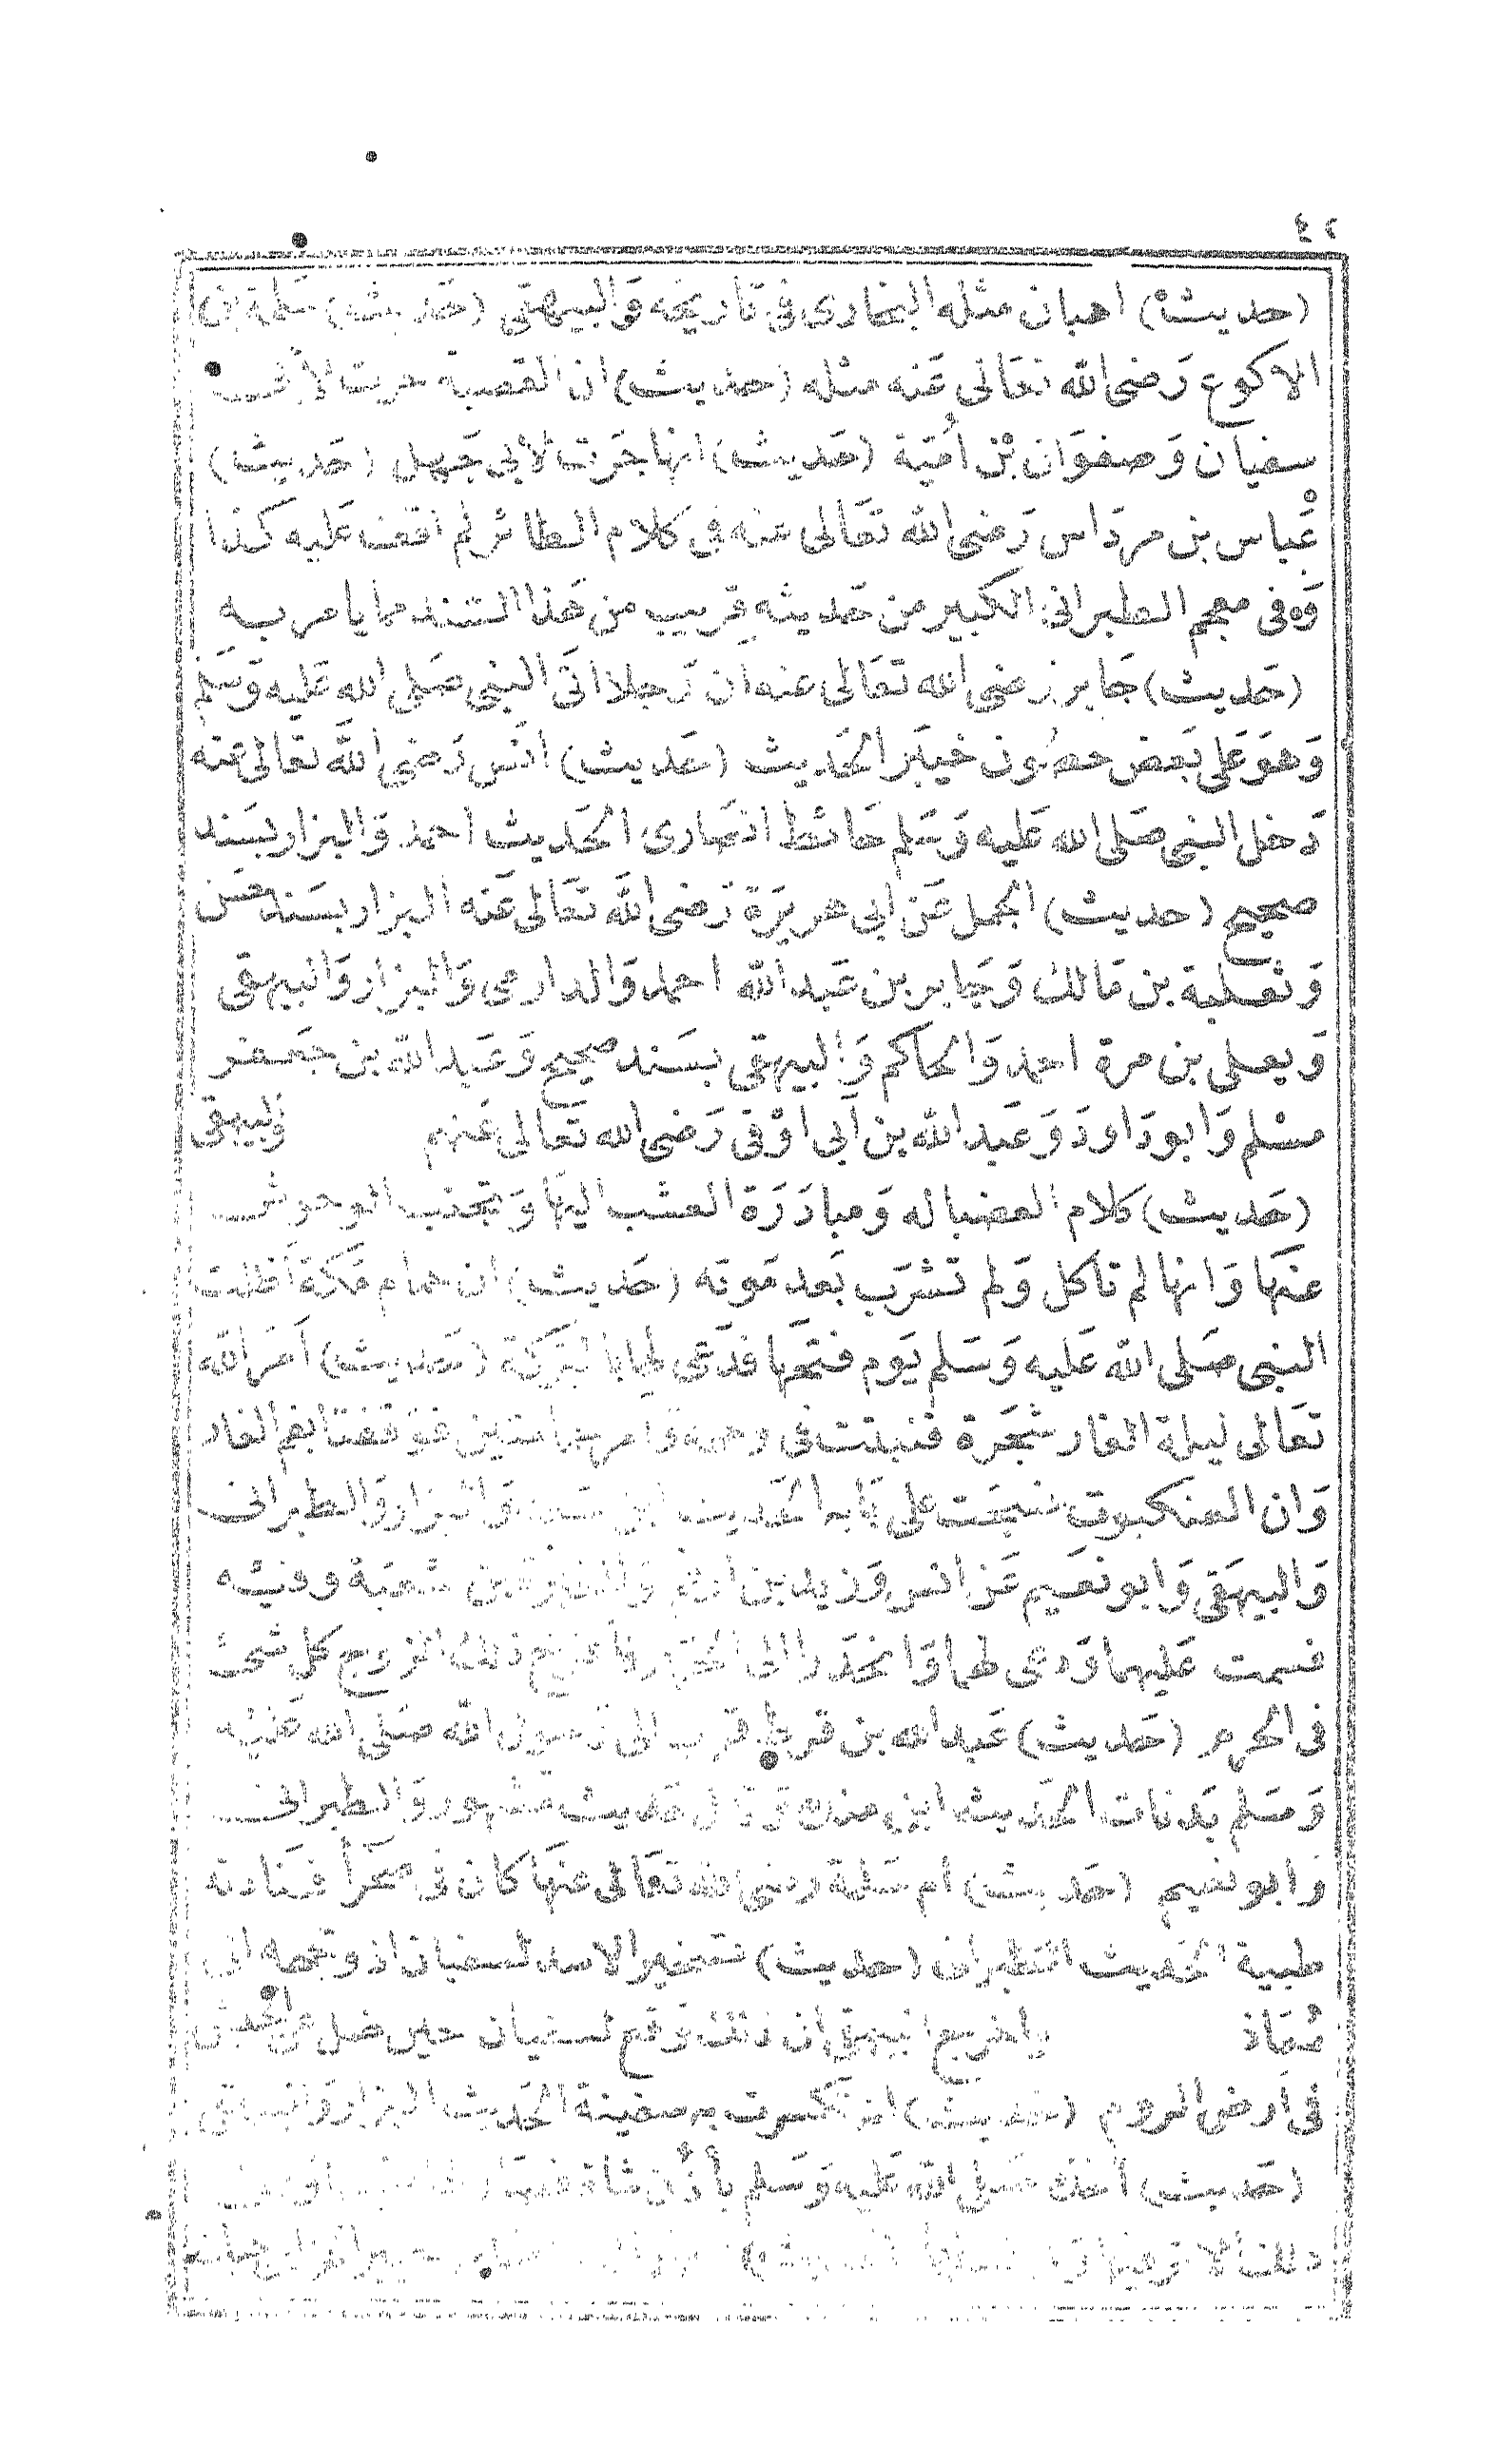 ٤٢
(حديث) اهبان مثله البخارى فى تاريخه وَالبيهقى (حَديث) سَلمة بن
الاكوع رَضى الله تعَالى عَنه مثله (حَديث) ان القصة جرت لأبى
سفيان وَصفوَان بْن أمَية (حَديث) انها جَرَت لأبى جَهل (حَديث)
عْباس بن مردَاس رَضى الله تعَالى عنه فى كلام الطائر لم اقف عَليه كذا
وَفى معجم الطبرانى الكبير من حَديثه قريب من هَذا السَند مما يامر به
(حَديث) جَابر رضى الله تعَالى عنه ان رَجلا اتى النبى صَلى الله عَليه وَسَلم
وَهوَ عَلى بَعض حصُون خيبَر الحَديث (حَديث) انَس رَضى الله تعَالى عنه
دَخل النبى صَلى الله عَليه وَسَلم حَائط انصَارى الحَديث احمد وَالبزار بسَند
صحيح (حديث) الجمل عَن ابى هريرَة رَضى الله تعَالى عَنه البزار بسَند حسَن
وَثعلبة بن مَالك وَجَابر بن عَبد الله احمد وَالدارمى وَالبزار وَالبيهقى
وَيعلى بن مرة احمد وَالحاكم وَالبيهقى بسَند صحيح وَعَبد الله بن جَعفر
مسْلم وَابو دَاود وَعَبد الله بن أبى اوْفى رَضى الله تَعالى عَنهم وَالبيهقى
(حَديث) كلام العضبا له وَمبادَرَة العشب اليهَا وَتجنب الوحوش
عنهَا وَانها لم تاكل وَلم تشرَب بَعد مَوته (حَديث) ان حمام مَكة أظلت
النبى صَلى الله عَليه وَسَلم يَوم فتحَها فدَعى لها بالبَرَكة (حَديث) أمَر الله
تعَالى ليلة الغار شجَرة فنبتت فى وجهه وَامر حمامتين فوَقفتا بفم الغار
وَان العنكبوت نسجَت على بَابه الحَديث ابن سَعد وَالبزار وَالطبرانى
وَالبيهَقى وَابو نعَيم عَن انس وَزيد بن ارقم وَالمغيرَة بن شعبَة وفيْه
فسمت عَليهما وَدعى لهما وَانحَدرا الى الحَرم فأفرخ ذلك الزوج كل شىء
فى الحرم (حَديث) عَبد الله بن قرط قرب الى رَسول الله صَلى الله عَليْه
وَسَلم بَدنات الحَديث ابن منده وَقال حَديث مَشهور وَالطبرانى
وَابو نعيم (حَديث) أم سَلمة رضى الله تعَالى عنهَا كان فى صَحرَأ فنَادته
ظبية الحَديث الطبرانى (حديث) تسخير الاسد لسفينة اذ وَجهه الى
مُعَاذ واخرج البيهقى ان ذلك وَقع لسفينة حين ضل عن الجَيش
فى أرض الروم (حَديث) انه تكسرت به سفينة الحَديث البزار وَالبيهقى
(حَديث) أخذ صَلى الله عَليه وَسَلم بأذُن شاة